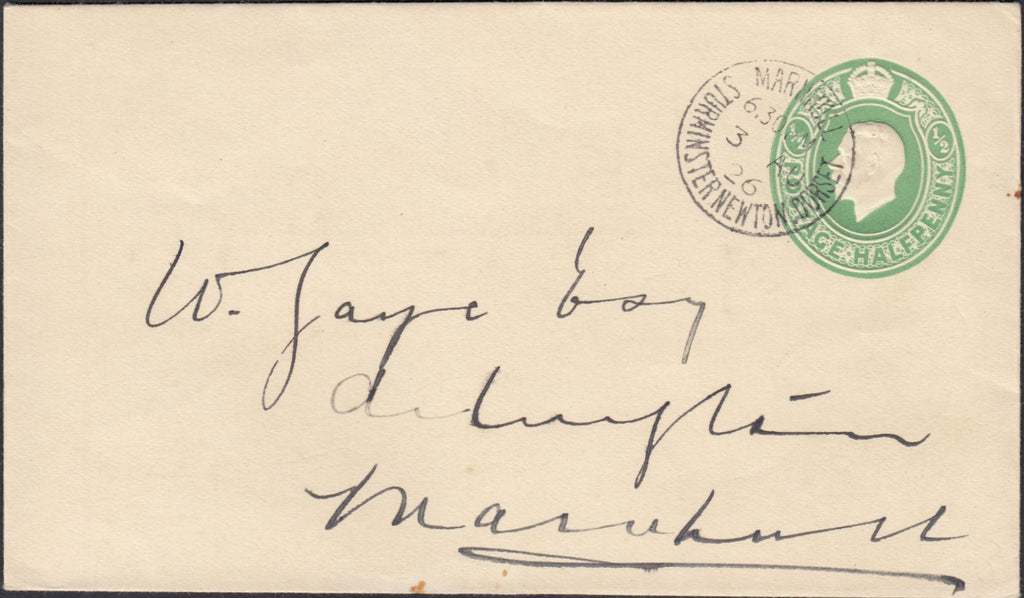 MARNHULL
STURMINSTER NEWTON. DORSET
6.30 PM
3 AP
26
½ ½
POSTAGE·HALFPENNY
W. Jaye Esq
Marnhull